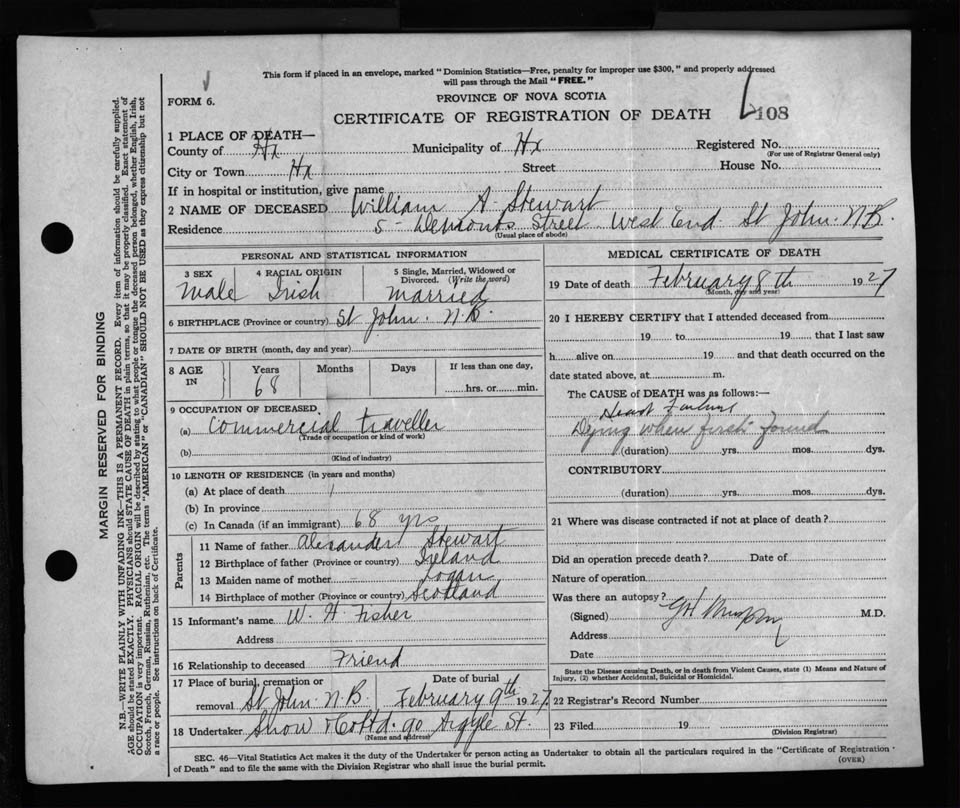 This form if placed in an envelope, marked "Dominion Statistics—Free, penalty for improper use $300," and properly addressed
will pass through the Mail "FREE."
FORM 6.
PROVINCE OF NOVA SCOTIA
CERTIFICATE OF REGISTRATION OF DEATH
108
1 PLACE OF DEATH—
County of Hx Municipality of Hx Registered No.
(For use of Registrar General only)
City or Town Hx Street House No.
If in hospital or institution, give name
2 NAME OF DECEASED William A. Stewart
Residence 5 Street West End St John. N.B.
(Usual place of abode)
PERSONAL AND STATISTICAL INFORMATION
3 SEX 4 RACIAL ORIGIN 5 Single, Married, Widowed or Divorced. (Write the word)
Male Irish Married
6 BIRTHPLACE (Province or country) St John. N.B.
7 DATE OF BIRTH (month, day and year)
8 AGE IN Years Months Days If less than one day,
68 hrs. or min.
9 OCCUPATION OF DECEASED
(a) Commercial traveller
(Trade or occupation or kind of work)
(b)
(Kind of industry)
10 LENGTH OF RESIDENCE (in years and months)
(a) At place of death
(b) In province
(c) In Canada (if an immigrant) 68 yrs
Parents
11 Name of father Alexander Stewart
12 Birthplace of father (Province or country) Ireland
13 Maiden name of mother Logan
14 Birthplace of mother (Province or country) Scotland
15 Informant's name W. H. Fisher
Address
16 Relationship to deceased Friend
17 Place of burial, cremation or removal St John. N.B. Date of burial February 9th 1927
18 Undertaker Snow & Co Ltd. 90 Argyle St.
(Name and address)
MEDICAL CERTIFICATE OF DEATH
19 Date of death February 8th 1927
(Month, day and year)
20 I HEREBY CERTIFY that I attended deceased from
19 to 19 that I last saw
h alive on 19 and that death occurred on the
date stated above, at m.
The CAUSE OF DEATH was as follows:—
Heart Failure
Dying when first found
(duration) yrs. mos. dys.
CONTRIBUTORY
(duration) yrs. mos. dys.
21 Where was disease contracted if not at place of death?
Did an operation precede death? Date of
Nature of operation
Was there an autopsy?
(Signed) M.D.
Address
Date
State the Disease causing Death, or in death from Violent Causes, state (1) Means and Nature of
Injury, (2) whether Accidental, Suicidal or Homicidal.
22 Registrar's Record Number
23 Filed 19
(Division Registrar)
SEC. 46—Vital Statistics Act makes it the duty of the Undertaker or person acting as Undertaker to obtain all the particulars required in the "Certificate of Registration
of Death" and to file the same with the Division Registrar who shall issue the burial permit.
(OVER)
MARGIN RESERVED FOR BINDING
N.B.—WRITE PLAINLY WITH UNFADING INK—THIS IS A PERMANENT RECORD. Every item of information should be carefully supplied.
AGE should be stated EXACTLY. PHYSICIANS should STATE CAUSE OF DEATH in plain terms, so that it may be properly classified. Exact statement of
OCCUPATION is very important. RACIAL ORIGIN will be described by stating to what people or tongue the deceased person belonged, whether English, Irish,
Scotch, French, German, Russian, Ruthenian, etc. The terms "AMERICAN" or "CANADIAN" SHOULD NOT BE USED as they express citizenship but not
a race or people. See instructions on back of Certificate.